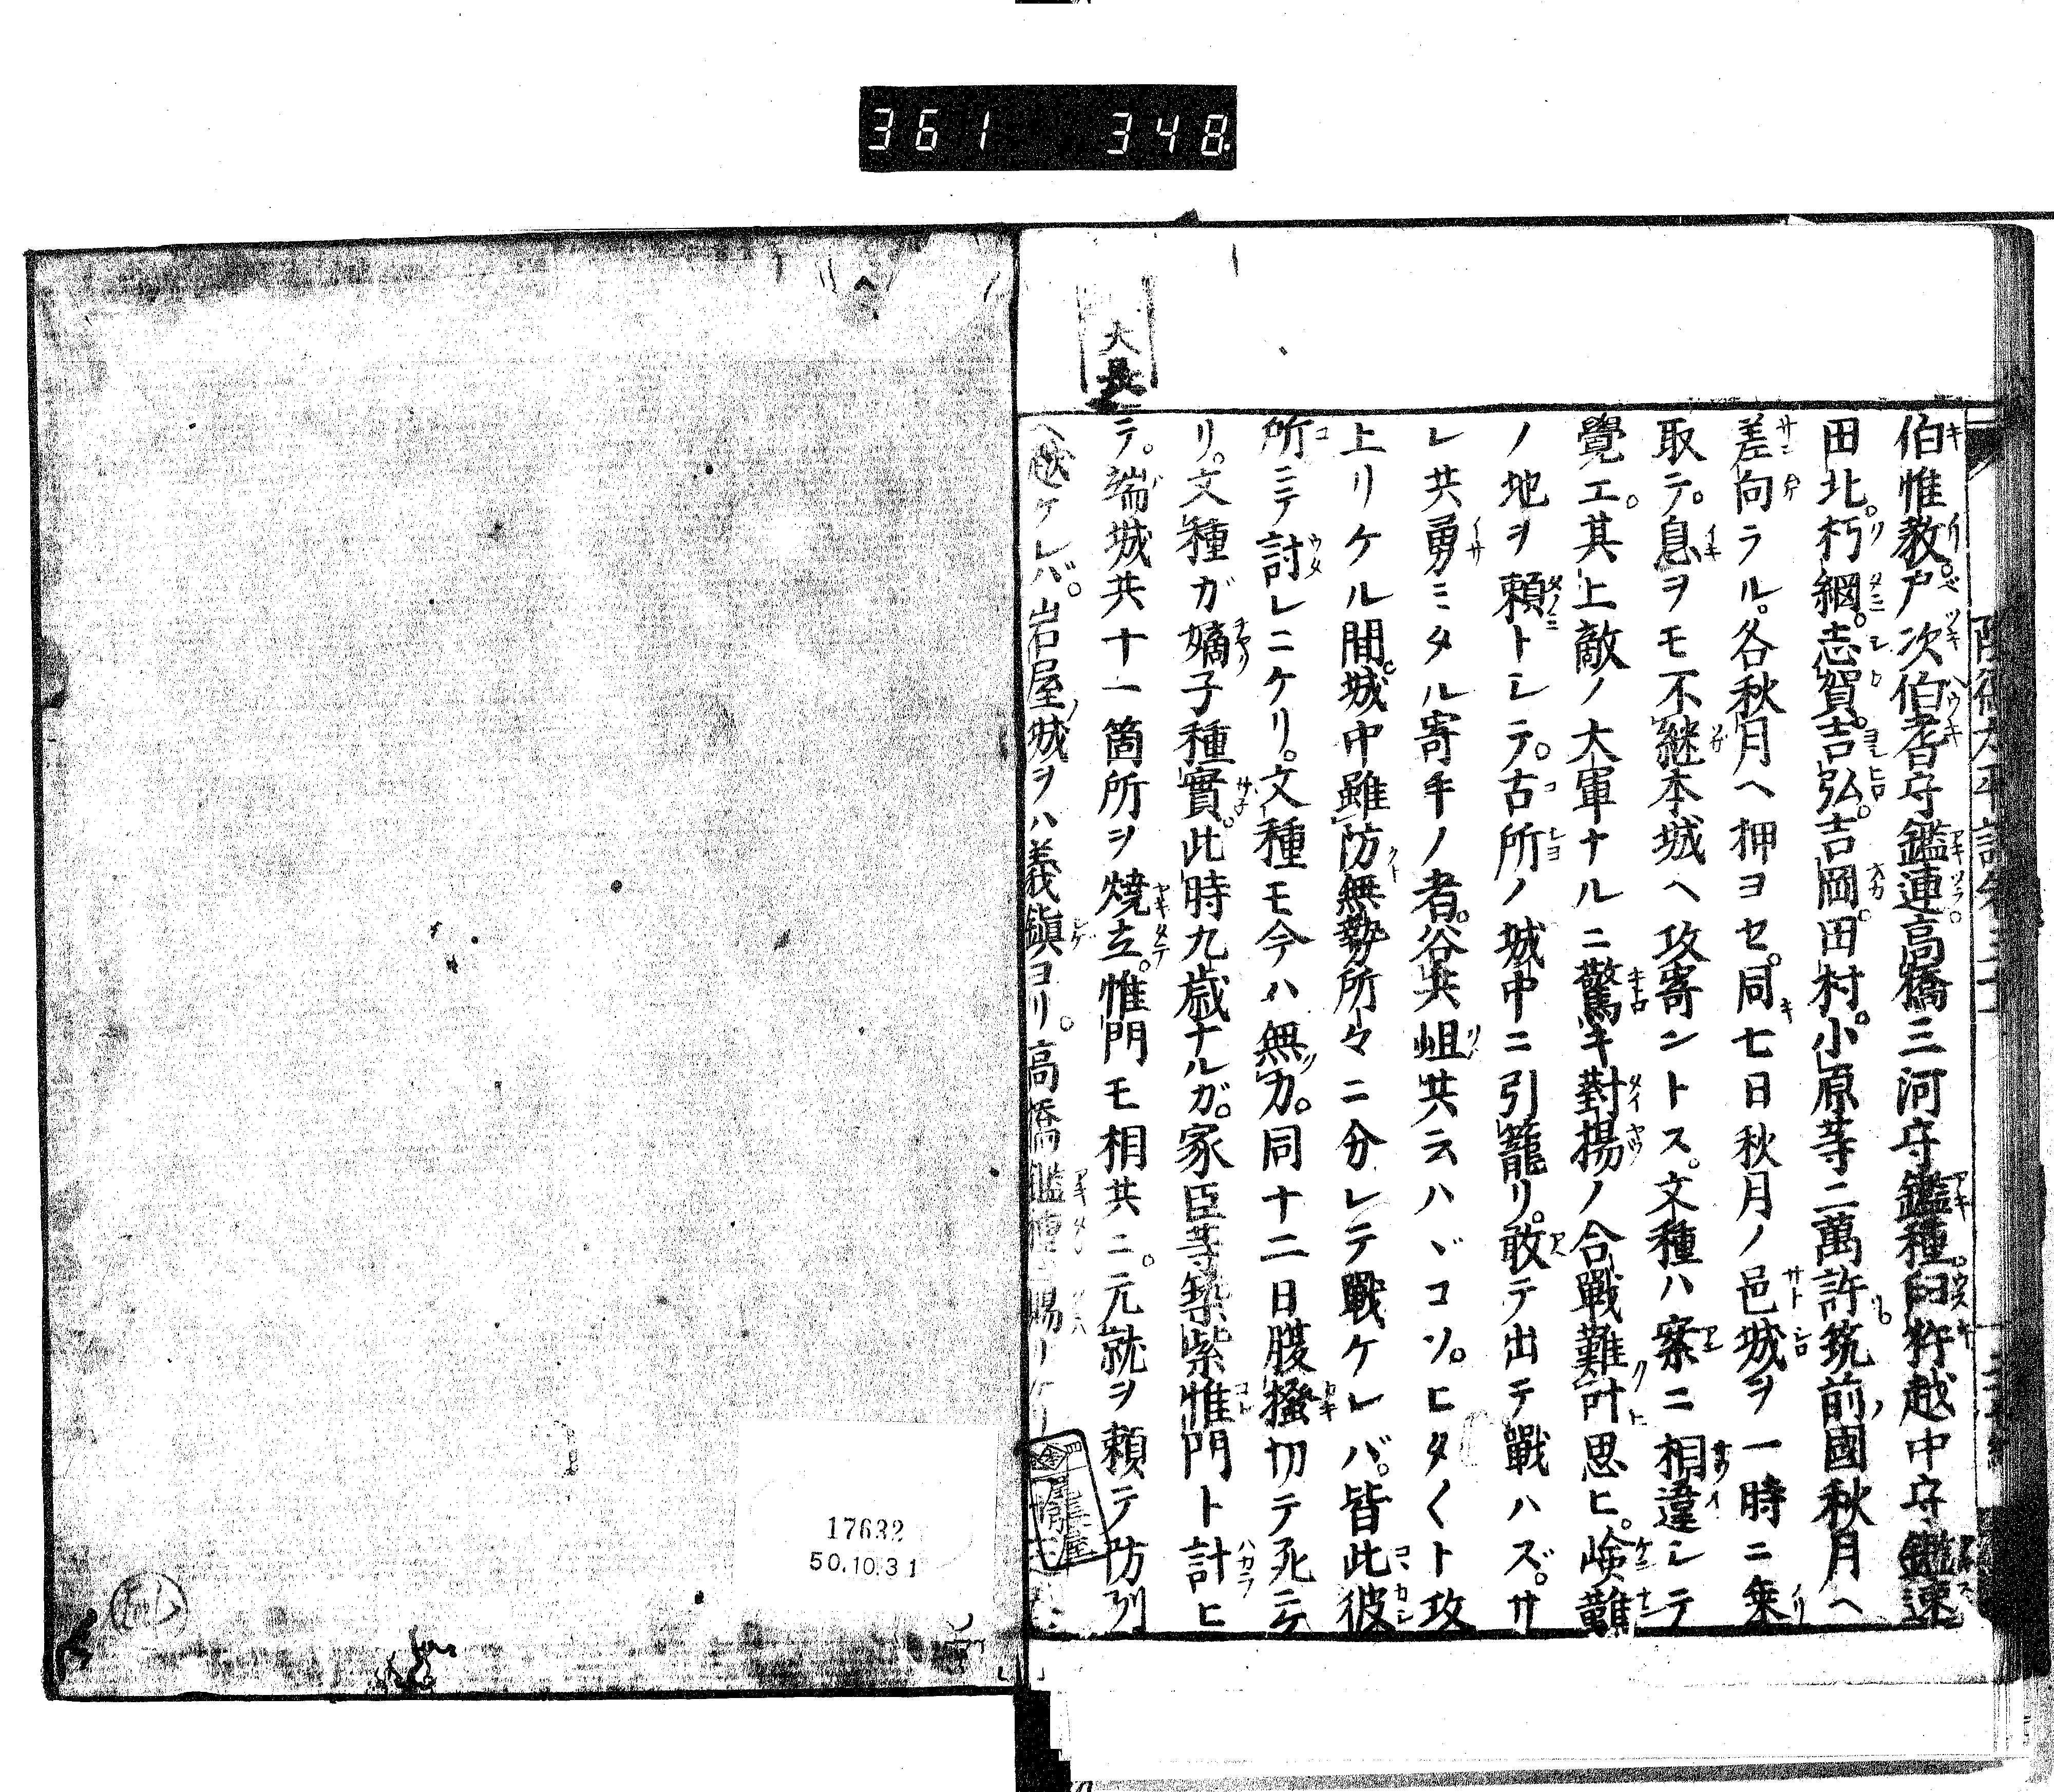 361 348
大長
伯惟教。戸次伯耆守鑑連。高橋三河守鑑種。臼杵越中守鑑速
田北。朽網。志賀。吉弘。吉岡。田村。小原等二萬許。筑前國秋月ヘ
差向ラル。各秋月ヘ押ヨセ。同七日秋月ノ邑城ヲ一時ニ乗
取テ。息ヲモ不継本城ヘ攻寄ントス。文種ハ案ニ相違シテ
覺エ。其上敵ノ大軍ナルニ驚キ對揚ノ合戰難計思ヒ。嶮難
ノ地ヲ頼トシテ。古所ノ城中ニ引籠リ。敢テ出テ戰ハズ。サ
レ共勇ミタル寄手ノ者。谷共岨共云ハヾコソ。ヒタ〱ト攻
上リケル間。城中雖防無勢所々ニ分レテ戰ケレバ。皆此彼
所ニテ討レニケリ。文種モ今ハ無力。同十二日腹搔切テ死ニケ
リ。文種ガ嫡子種實。此時九歳ナルガ。家臣等筑紫惟門ト計ヒ
テ。端城共十一箇所ヲ燒立。惟門モ相共ニ。元就ヲ頼テ防州
ヘ ケレバ。岩屋城ヲハ義鎭ヨリ。高橋鑑種 賜
17632
50.10.31